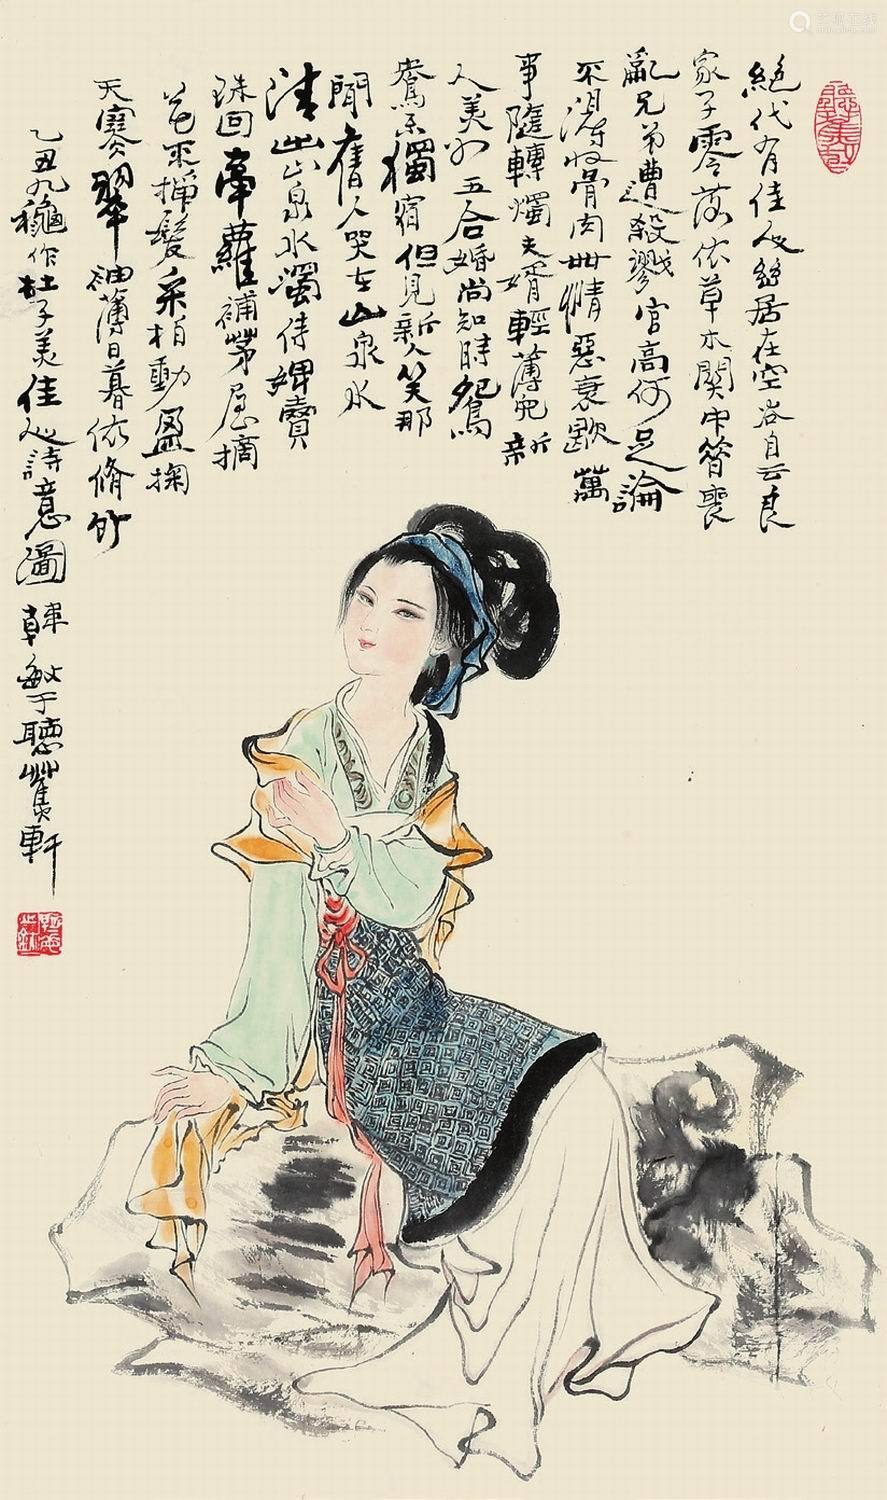 絕代有佳人幽居在空谷自云良
家子零落依草木關中昔喪
亂兄弟遭殺戮官高何足論
不得收骨肉世情惡衰歇萬
事隨轉燭夫婿輕薄兒新
人美如玉合婚尚知時鴛
鴦不獨宿但見新人笑那
聞舊人哭在山泉水
清出山泉水濁侍婢賣
珠回牽蘿補茅屋摘
花不插髮采柏動盈掬
天寒翠袖薄日暮依脩竹
乙丑九龝作杜子美佳人詩意圖 韓敏于聽蕉軒